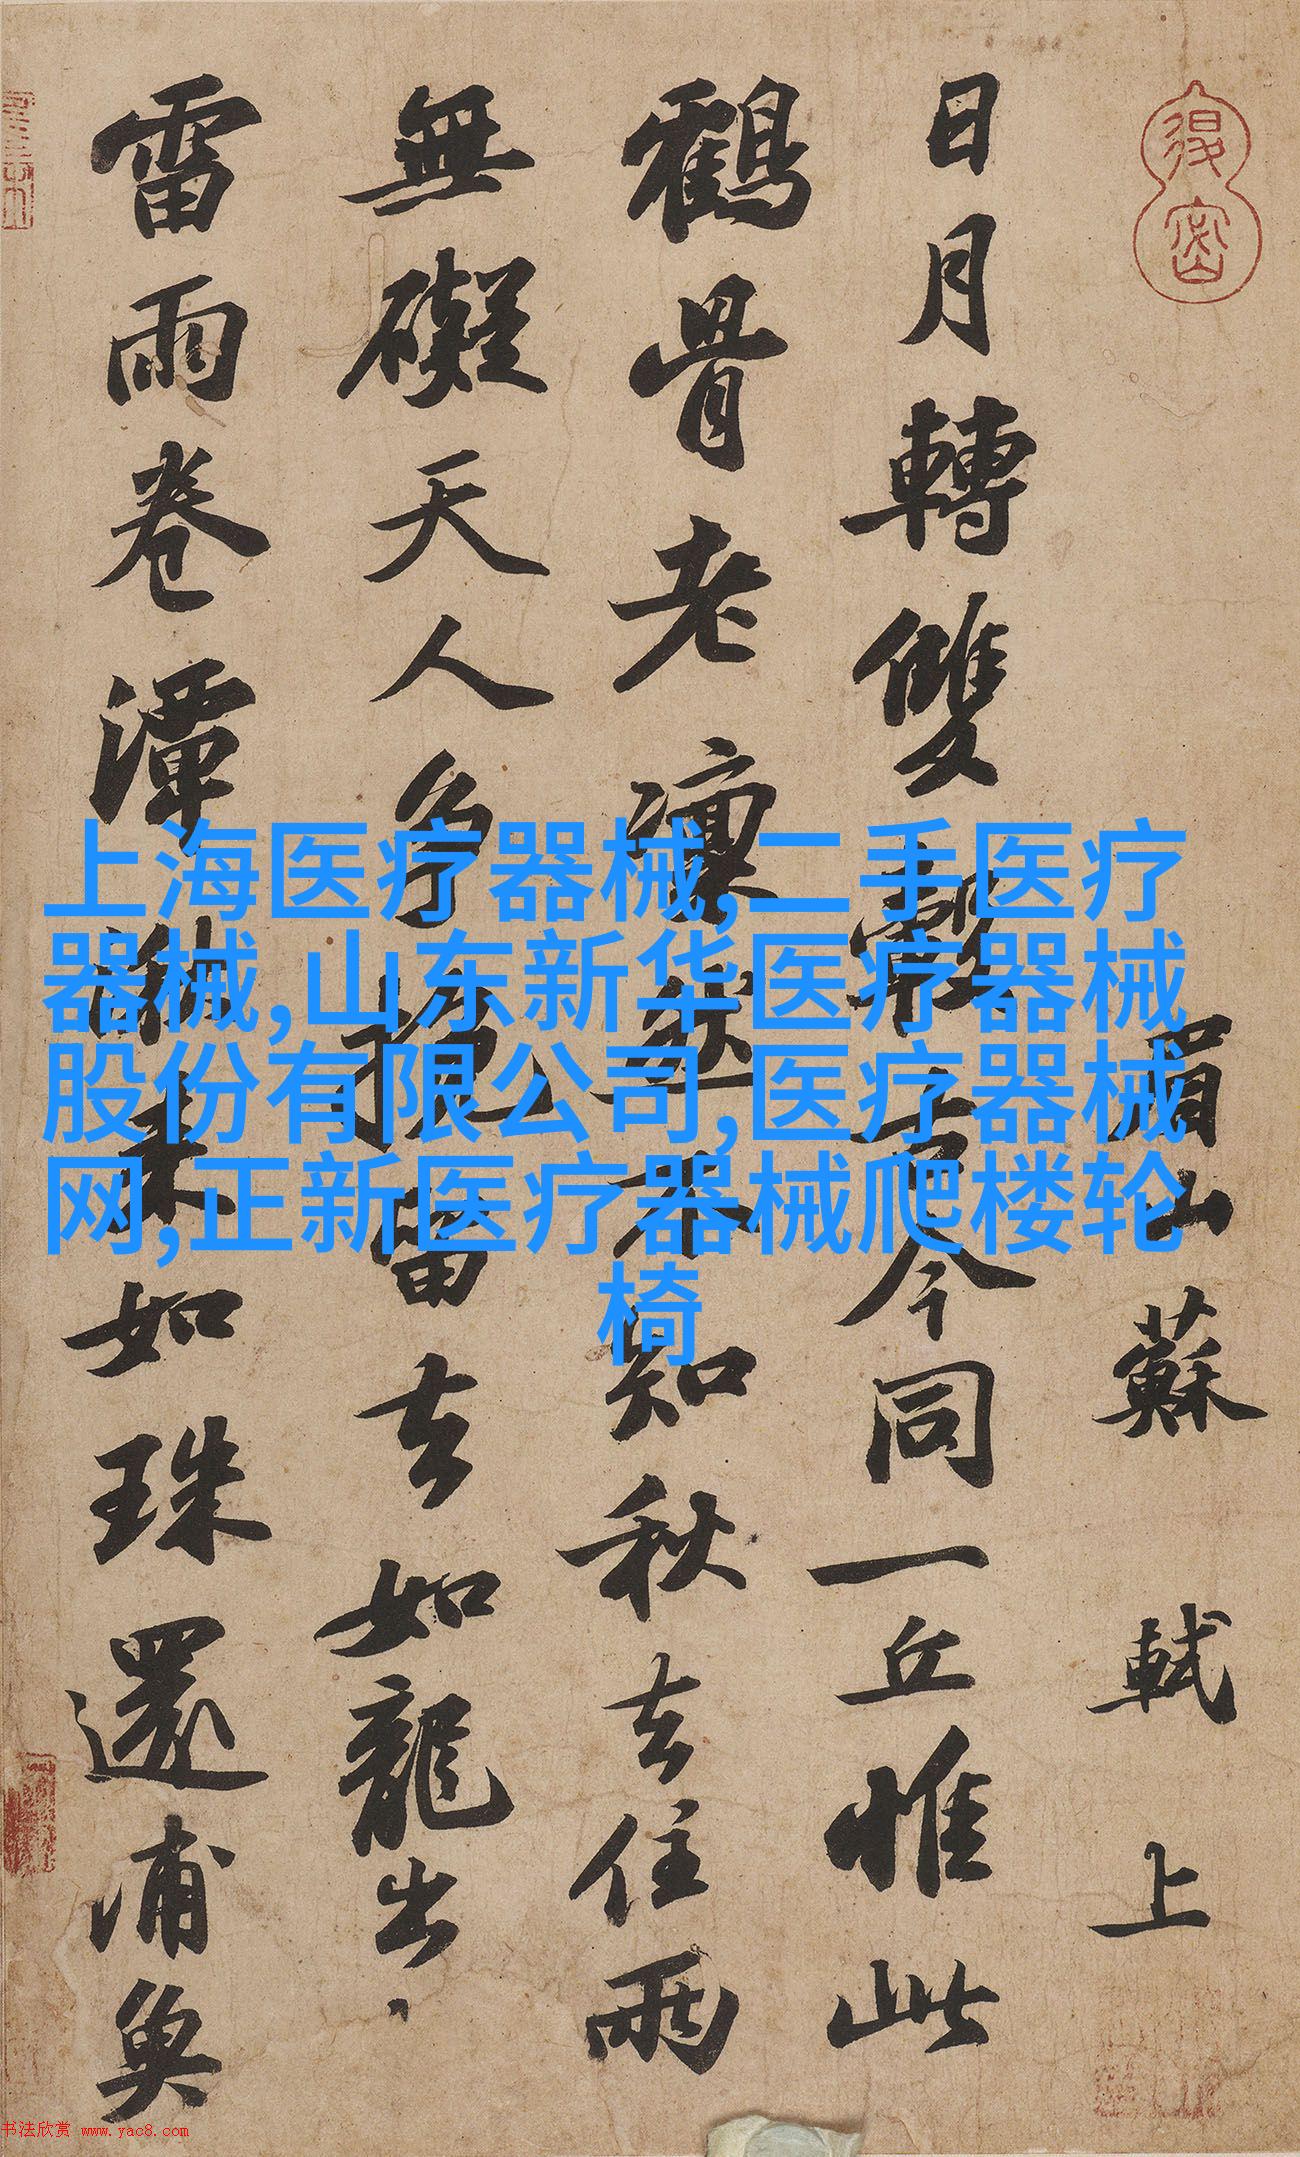 眉山蘇軾上
日月轉雙轂古今同一丘惟此
鶴骨老凜然不知秋去住兩
無礙天人爭挽留去如龍出
雷雨卷潭湫来如珠還浦魚
上海医疗器械,二手医疗
器械,山东新华医疗器械
股份有限公司,医疗器械
网,正新医疗器械爬楼轮
椅
书法欣赏 www.yac8.com